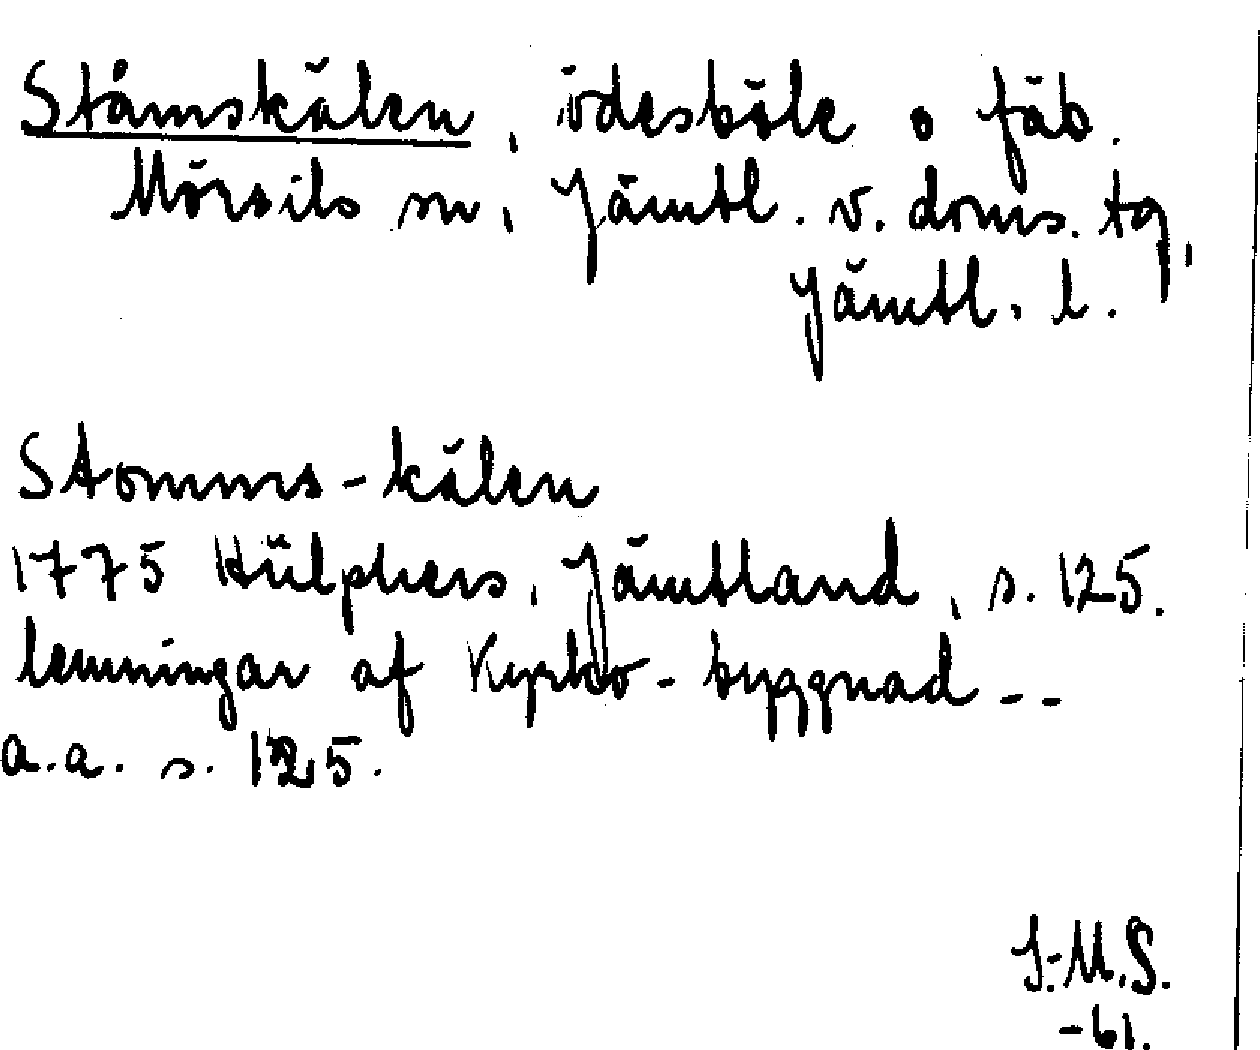 Ståmskälen, ödesböle o fäb.
Mörsils sn, Jämtl. v. doms. tg,
Jämtl. l.
Stomms-kälen
1775 Hülphers, Jämtland, s. 125.
lemningar af Kyrko-byggnad --
a.a. s. 125.
J.M.S.
-61.